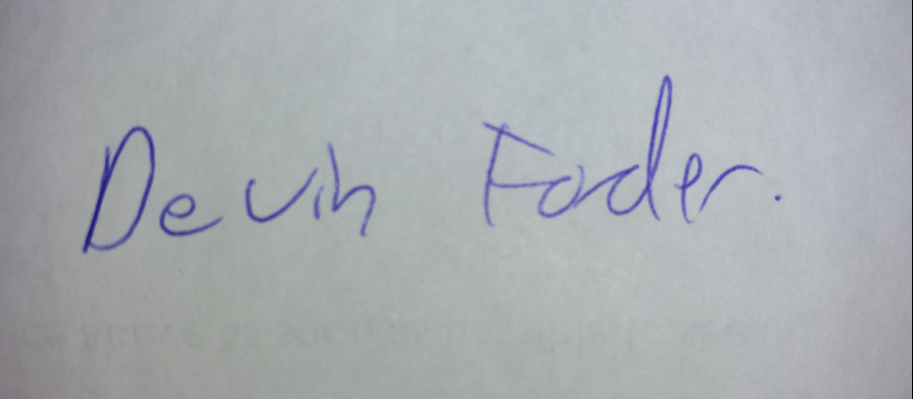 Devin Fader.